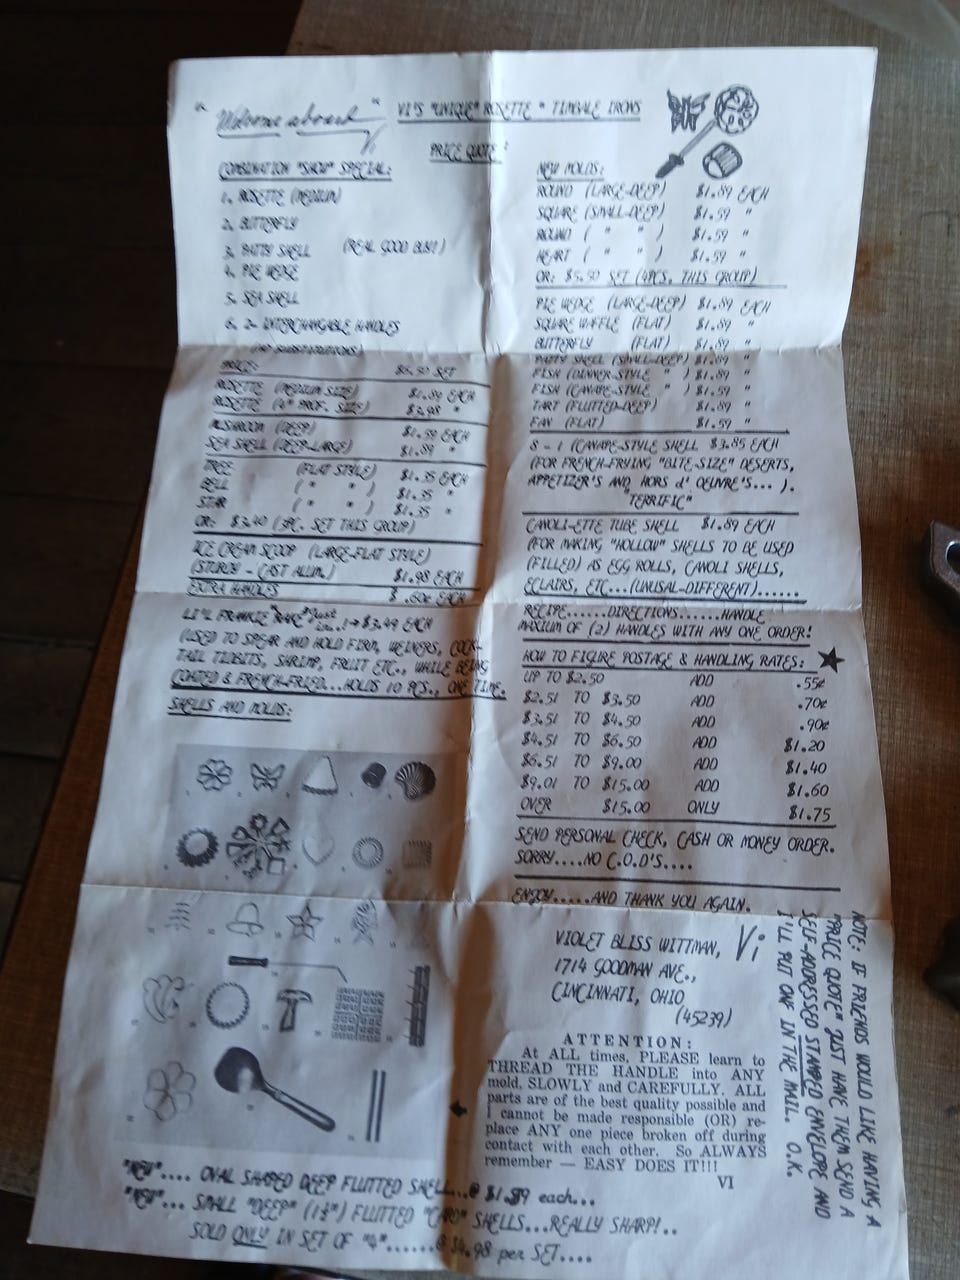 "Welcome aboard" Vi
VI'S "UNIQUE" ROSETTE * TIMBALE IRONS
PRICE QUOTE:
COMBINATION "SHOW" SPECIAL:
1. ROSETTE (MEDIUM)
2. BUTTERFLY
3. PATTY SHELL (REAL GOOD BUY!)
4. PIE WEDGE
5. SEA SHELL
6. 2- INTERCHANGABLE HANDLES
(NO SUBSTITUTIONS)
PRICE: $6.50 SET
ROSETTE (MEDIUM SIZE) $1.89 EACH
ROSETTE (4" PROF. SIZE) $2.98 "
MUSHROOM (DEEP) $1.59 EACH
SEA SHELL (DEEP-LARGE) $1.89 "
TREE (FLAT STYLE) $1.35 EACH
BELL ( " " ) $1.35 "
STAR ( " " ) $1.35 "
OR: $3.40 (3PC. SET THIS GROUP)
ICE CREAM SCOOP (LARGE-FLAT STYLE)
(STURDY - CAST ALUM.) $1.98 EACH
EXTRA HANDLES $ .60¢ EACH
LI'L FRANKIE "BAKE" Just $3.49 EACH
(USED TO SPEAR AND HOLD FIRM, WEINERS, COCK-
TAIL TIDBITS, SHRIMP, FRUIT ETC., WHILE BEING
COATED & FRENCH-FRIED...HOLDS 10 PCS., ONE TIME.
SHELLS AND MOLDS:
NEW MOLDS:
ROUND (LARGE-DEEP) $1.89 EACH
SQUARE (SMALL-DEEP) $1.59 "
ROUND ( " " ) $1.59 "
HEART ( " " ) $1.59 "
OR: $5.50 SET (4PCS. THIS GROUP)
PIE WEDGE (LARGE-DEEP) $1.89 EACH
SQUARE WAFFLE (FLAT) $1.89 "
BUTTERFLY (FLAT) $1.89 "
PATTY SHELL (SMALL-DEEP) $1.89 "
FISH (DINNER-STYLE " ) $1.89 "
FISH (CANAPE-STYLE " ) $1.59 "
TART (FLUTTED-DEEP) $1.89 "
FAN (FLAT) $1.59 "
8 - 1 (CANAPE-STYLE SHELL $3.85 EACH
(FOR FRENCH-FRYING "BITE-SIZE" DESERTS,
APPETIZER'S AND HORS d' OEUVRE'S... ).
"TERRIFIC"
CANOLI-ETTE TUBE SHELL $1.89 EACH
(FOR MAKING "HOLLOW" SHELLS TO BE USED
(FILLED) AS EGG ROLLS, CANOLI SHELLS,
ECLAIRS, ETC...(UNUSAL-DIFFERENT)......
RECIPE......DIRECTIONS......HANDLE
MAXIUM OF (2) HANDLES WITH ANY ONE ORDER!
HOW TO FIGURE POSTAGE & HANDLING RATES:
UP TO $2.50 ADD .55¢
$2.51 TO $3.50 ADD .70¢
$3.51 TO $4.50 ADD .90¢
$4.51 TO $6.50 ADD $1.20
$6.51 TO $9.00 ADD $1.40
$9.01 TO $15.00 ADD $1.60
OVER $15.00 ONLY $1.75
SEND PERSONAL CHECK, CASH OR MONEY ORDER.
SORRY....NO C.O.D'S....
ENJOY.....AND THANK YOU AGAIN.
VIOLET BLISS WITTMAN, Vi
1714 GOODMAN AVE.,
CINCINNATI, OHIO
(45239)
ATTENTION:
At ALL times, PLEASE learn to
THREAD THE HANDLE into ANY
mold, SLOWLY and CAREFULLY. ALL
parts are of the best quality possible and
I cannot be made responsible (OR) re-
place ANY one piece broken off during
contact with each other. So ALWAYS
remember — EASY DOES IT!!!
VI
NOTE: IF FRIENDS WOULD LIKE HAVING A
"PRICE QUOTE" JUST HAVE THEM SEND A
SELF-ADDRESSED STAMPED ENVELOPE AND
I'LL PUT ONE IN THE MAIL. O.K.
"NEW".... OVAL SHAPED DEEP FLUTTED SHELL...@ $1.89 each...
"NEW"... SMALL "DEEP" (1½") FLUTTED "CARD" SHELLS...REALLY SHARP!..
SOLD ONLY IN SET OF "4"......@ $4.98 per SET....